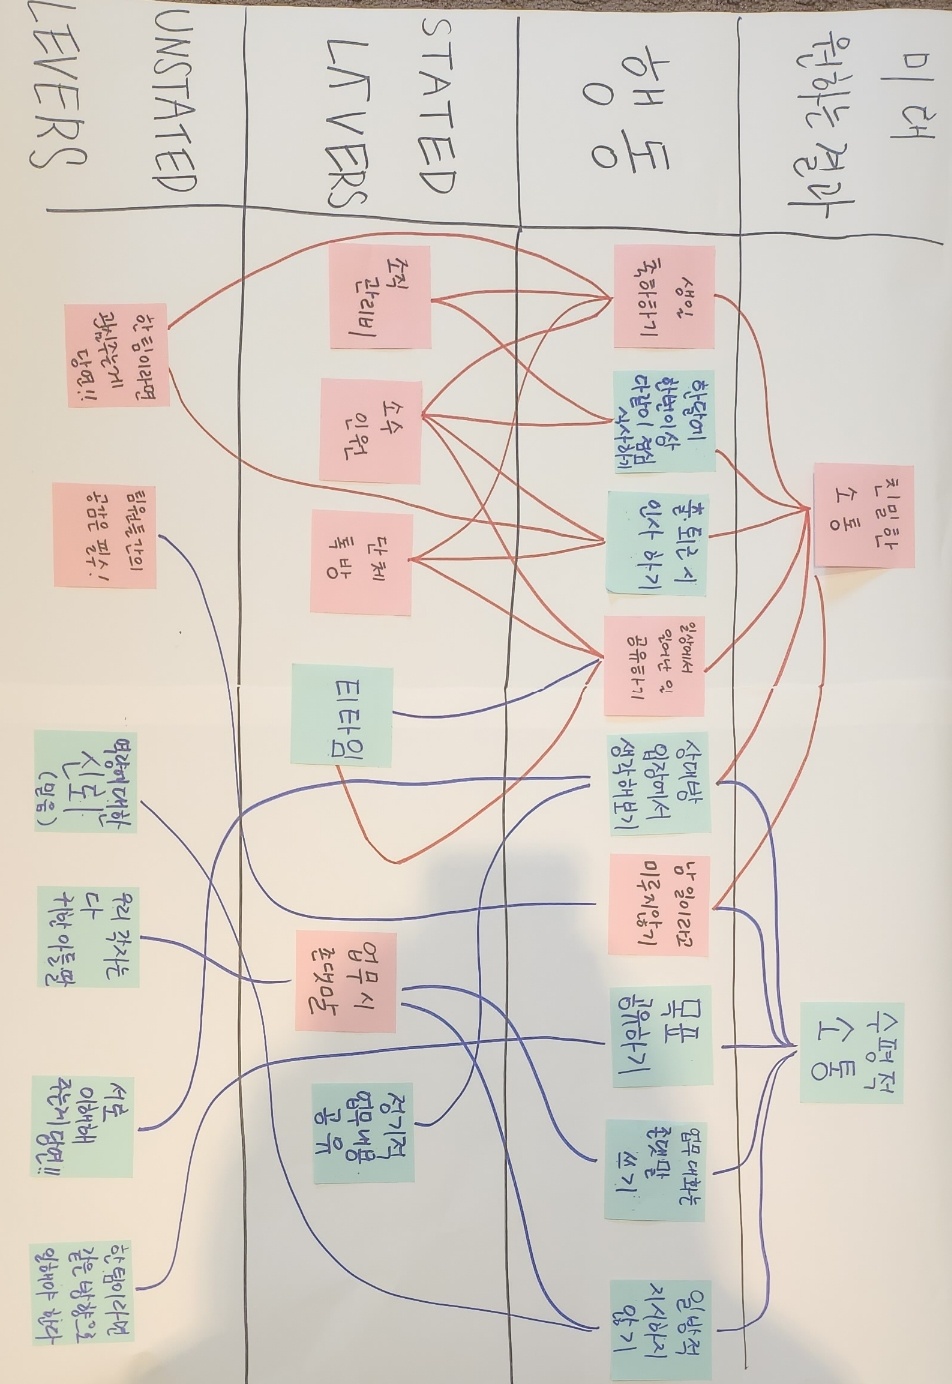 미래
원하는 결과
친밀한
소통
수평적
소통
행동
생일
축하하기
한달에
한번이상
다같이 점심
식사하기
출·퇴근 시
인사 하기
일상에서
일어난 일
공유하기
상대방
입장에서
생각해보기
남 일이라고
미루지않기
목표
공유하기
업무 대화는
존댓말
쓰기
일방적
지시하지
않기
STATED
LAVERS
조직
관리비
소수
인원
단체
톡방
티타임
업무시
존댓말
정기적
업무내용
공유
UNSTATED
LEVERS
한 팀이라면
관심주는게
당연!!
팀원들간의
공감은 필수!
역량에 대한
신뢰
(믿음)
우리 각자는
다
귀한 아들·딸
서로
이해해
주는게 당연!!
한 팀이라면
같은 방향으로
일해야 한다